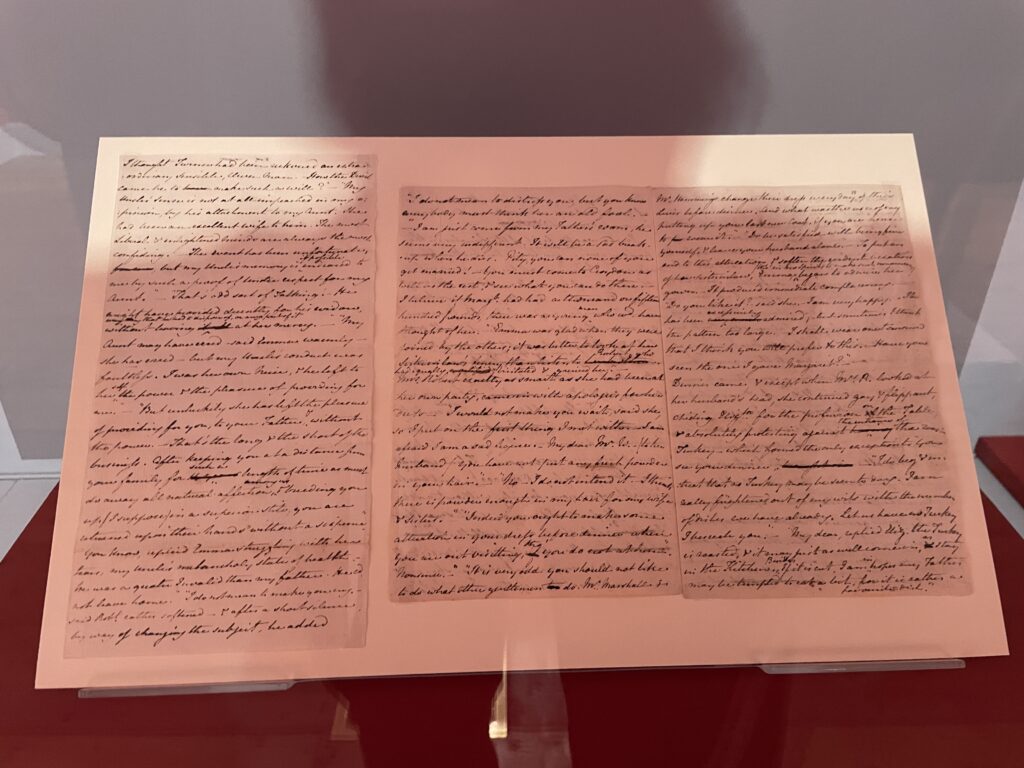 I thought Turner had been reckoned an extra-
ordinary sensible, clever man. - How the Devil
came he to make such a will?" "My
Uncle's Sense is not at all impeached in my o-
pinion, by his attachment to my Aunt. She
had been an excellent wife to him. The most
Liberal & enlightened minds are always the most
confiding. - The event has been unfortunate,
but my Uncle's memory is if possible endeared to
me by such a proof of tender respect for my
Aunt." - "That's odd sort of Talking! - He
might have provided decently for his widow,
without leaving
at her mercy. - "My
Aunt may have erred - said Emma warmly -
she has erred - but my Uncle's conduct was
faultless. I was her own Neice, & he left to
herself the power & the pleasure of providing for
me." "But unluckily she has left the pleasure
of providing for you, to your Father, & without
the power. - That's the long & the short of the
business. After keeping you at a distance from
your family for such a length of time as must
do away all natural affection among us & breeding you
up (I suppose) in a superior stile, you are
returned upon their hands without a sixpence."
You know, replied Emma struggling with her
tears, my Uncle's melancholy state of health. -
He was a greater Invalid than my father. He cd
not leave home." "I do not mean to make you cry. -
said Robt rather softened - & after a short silence,
by way of changing the subject, he added
"I do not mean to distress you, but you know
every body must think her an old fool. -
I am just come from my Father's room, he
seems very indifferent. It will be a sad break-
up when he dies. Pity, you can none of you
get married! - You must come to Croydon as
well as the rest, & see what you can do there. -
I beleive if Margt had had a thousand or fifteen
hundred pounds, there was a young man who wd have
thought of her." Emma was glad when they were
joined by the others; it was better to look at her
Sister in law's finery than listen to Robert, who
had equally irritated & greived her. -
Mrs Robert exactly as smart as she had been at
her own party, came in with apologies for her
dress - "I would not make you wait, said she,
so I put on the first thing I met with. - I am
afraid I am a sad figure. - My dear Mr W. - (to her
husband) you have not put any fresh powder
in your hair." - "No - I do not intend it. - I think
there is powder enough in my hair for my wife
& Sisters." - "Indeed you ought to make some
alteration in your dress before dinner when
you are out visiting, tho' you do not at home."
"Nonsense. -" "It is very odd you should not like
to do what other gentlemen do. Mr Marshall &
Mr Hemmings change their dress every day of their
Lives before dinner. And what was the use of my
putting up your last new Coat, if you are never
to wear it." - "Do be satisfied with being fine
yourself, & leave your husband alone." - To put an
end to this altercation, & soften the evident vexation
of her Sister in law, Emma (tho' in no Spirits to make such nonsense easy)
began to admire her
gown. - It produced immediate complacency. -
"Do you like it? - said she. - I am very happy. - It
has been excessively admired; - but sometimes I think
the pattern too large. - I shall wear one tomorrow
that I think you will prefer to this. - Have you
seen the one I gave Margaret?" -
Dinner came, & except when Mrs R. looked at
her husband's head, she continued gay & flippant,
chiding Elizth for the profusion on the Table,
& absolutely protesting against the entrance of the roast
Turkey - which formed the only exception to "You
see your dinner". - "I do beg & en-
treat that no Turkey may be seen to day. I am
really frightened out of my wits with the number
of dishes we have already. Let us have no Turkey
I beseech you. -" "My dear, replied Eliz. the Turkey
is roasted, & it may just as well come in, as stay
in the Kitchen. Besides if it is cut, I am in hopes my Father
may be tempted to eat a bit, for it is rather a
favourite dish."